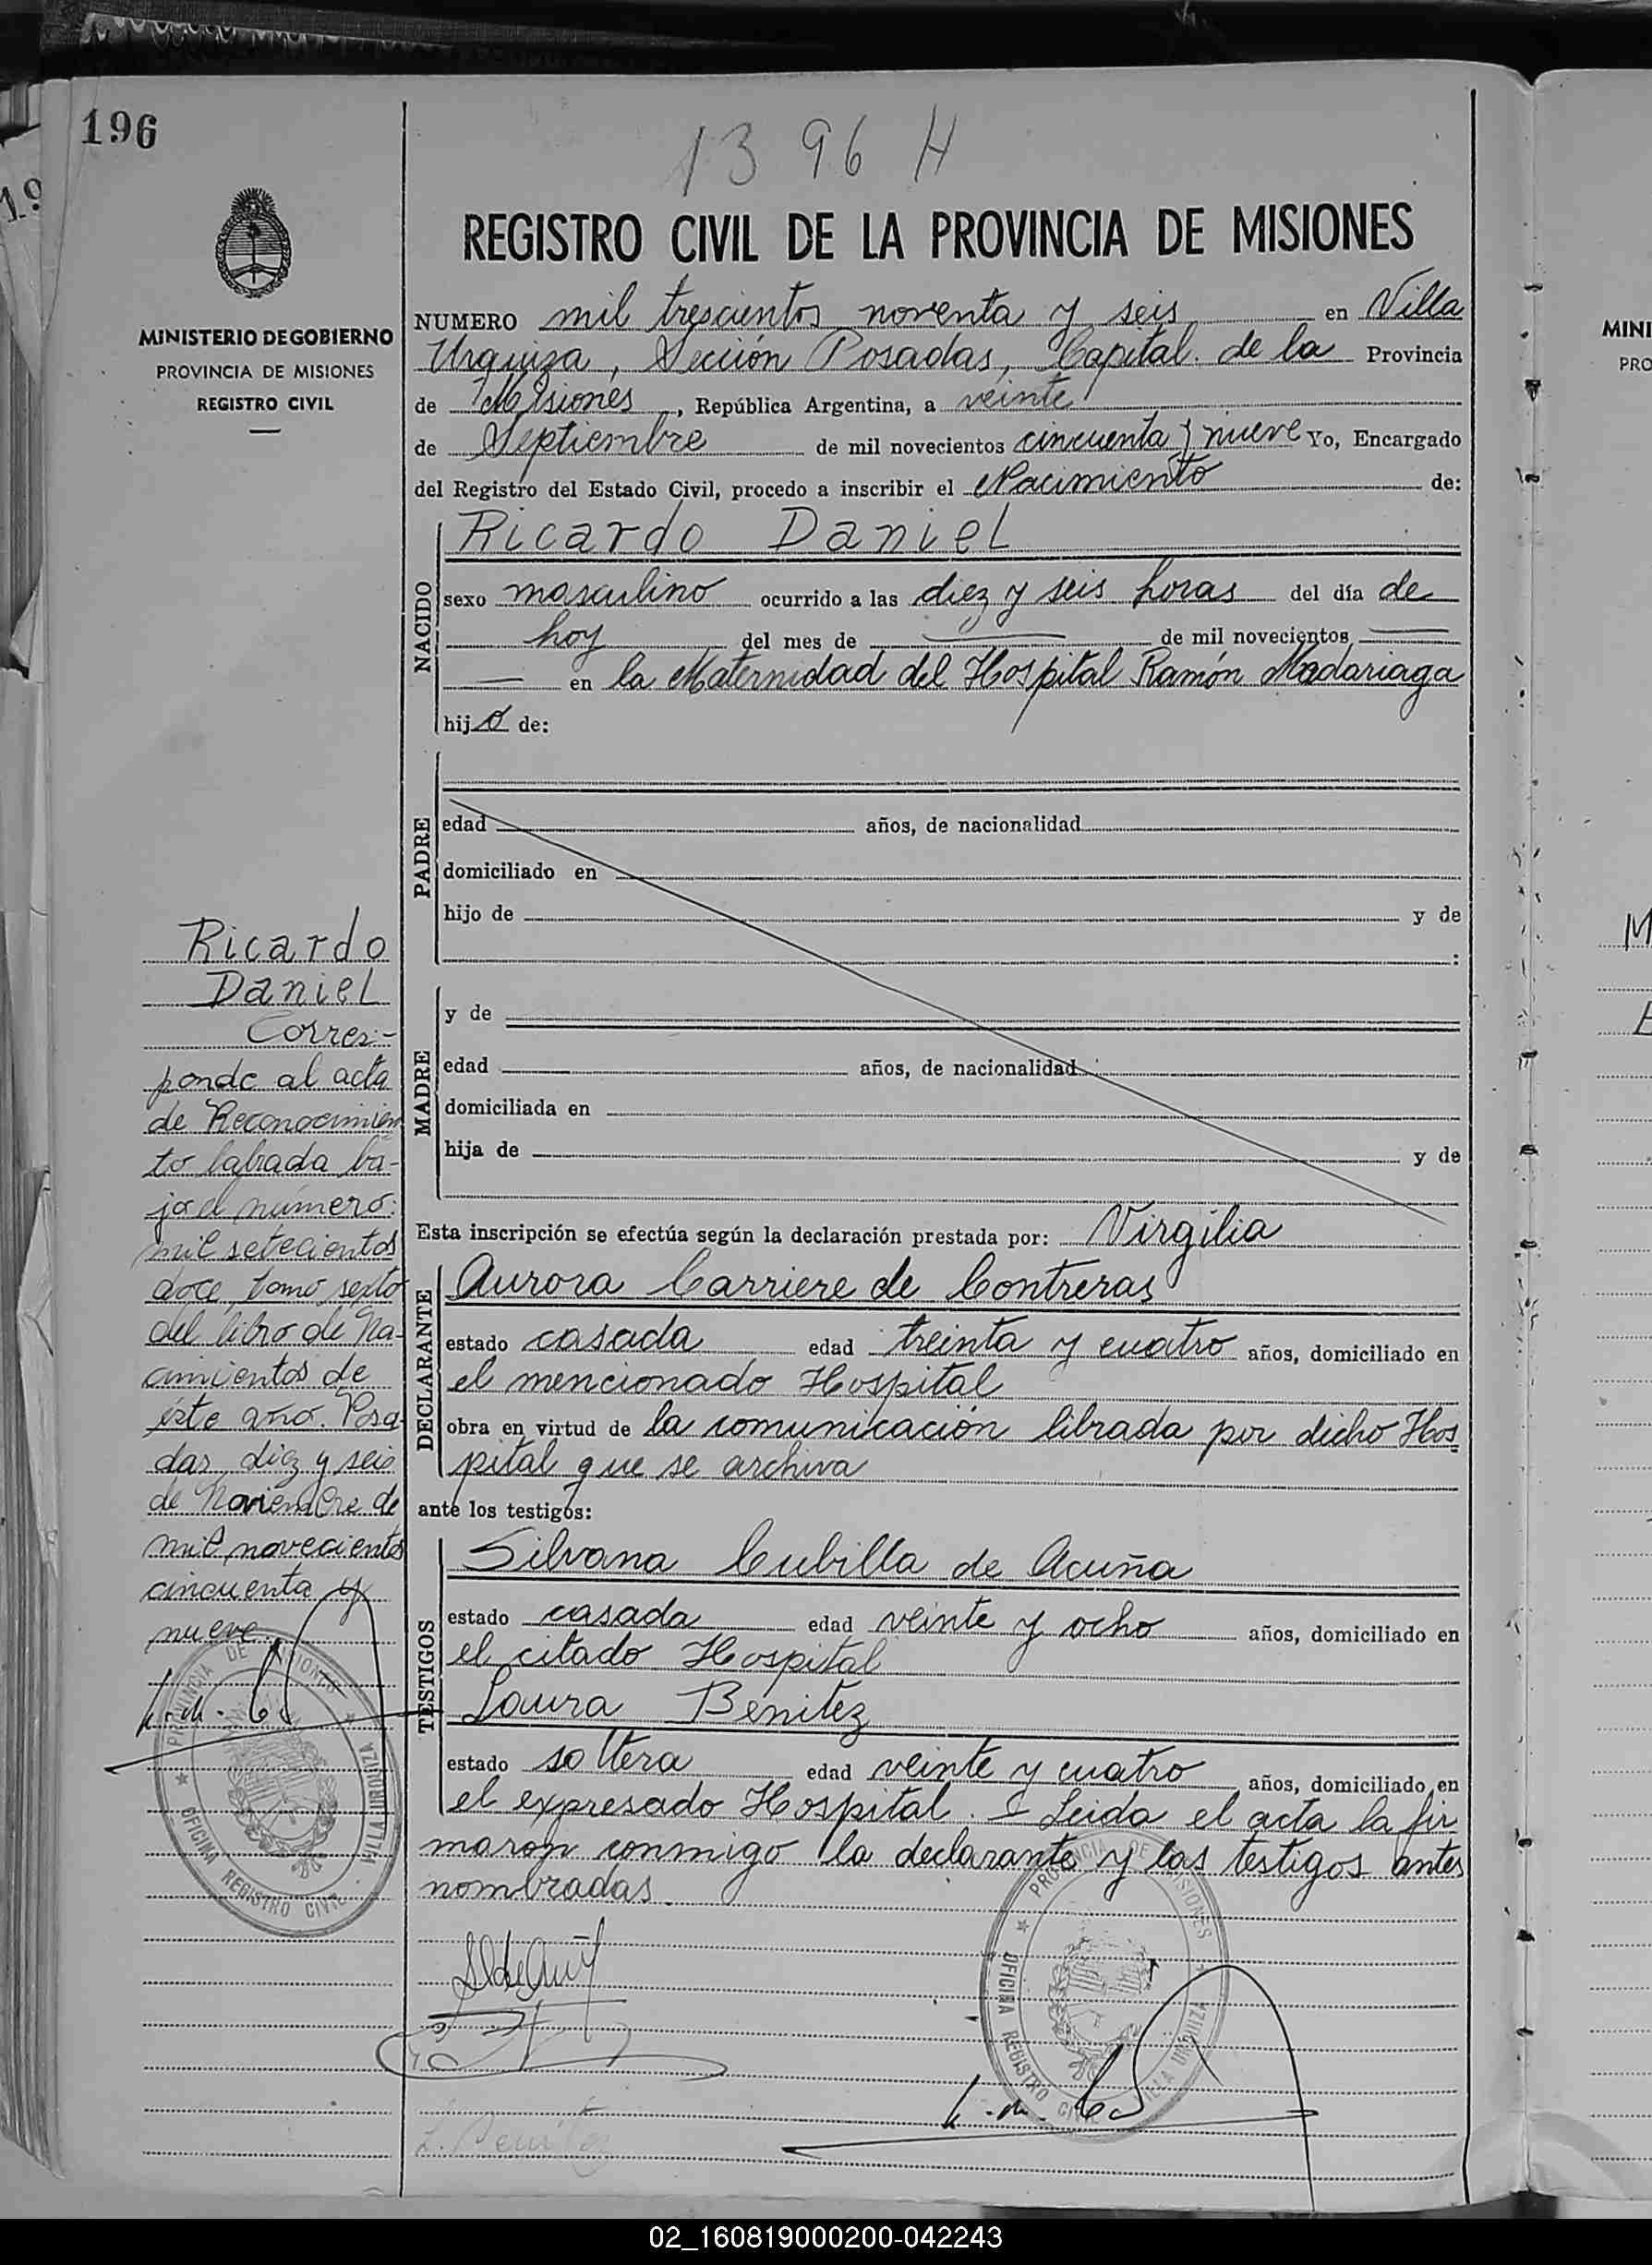 196
1396 H
MINISTERIO DE GOBIERNO
PROVINCIA DE MISIONES
REGISTRO CIVIL
REGISTRO CIVIL DE LA PROVINCIA DE MISIONES
NUMERO mil trescientos noventa y seis en Villa
Urquiza, Sección Posadas, Capital de la Provincia
de Misiones, República Argentina, a veinte
de Septiembre de mil novecientos cincuenta y nueve Yo, Encargado
del Registro del Estado Civil, procedo a inscribir el Nacimiento de:
NACIDO
Ricardo Daniel
sexo masculino ocurrido a las diez y seis horas del día de
hoy del mes de — de mil novecientos —
— en la Maternidad del Hospital Ramón Madariaga
hijo de:
PADRE
edad años, de nacionalidad
domiciliado en
hijo de y de
:
MADRE
y de
edad años, de nacionalidad
domiciliada en
hija de y de
Esta inscripción se efectúa según la declaración prestada por: Virgilia
DECLARANTE
Aurora Carriere de Contreras
estado casada edad treinta y cuatro años, domiciliado en
el mencionado Hospital
obra en virtud de la comunicación librada por dicho Hos
pital que se archiva
ante los testigos:
TESTIGOS
Silvana Cubilla de Acuña
estado casada edad veinte y ocho años, domiciliado en
el citado Hospital
Laura Benitez
estado soltera edad veinte y cuatro años, domiciliado en
el expresado Hospital. Leida el acta la fir
maron conmigo la declarante y las testigos antes
nombradas.
L. Benitez
PROVINCIA DE MISIONES
OFICINA REGISTRO CIVIL VILLA URQUIZA
Ricardo
Daniel
Corres-
ponde al acta
de Reconocimien
to labrada ba-
jo el número:
mil setecientos
doce, tomo sexto
del libro de Na-
cimientos de
éste año. Posa
das, diez y seis
de Noviembre de
mil novecientos
cincuenta y
nueve
PROVINCIA DE MISIONES
OFICINA REGISTRO CIVIL VILLA URQUIZA
MINI
PRO
02_160819000200-042243